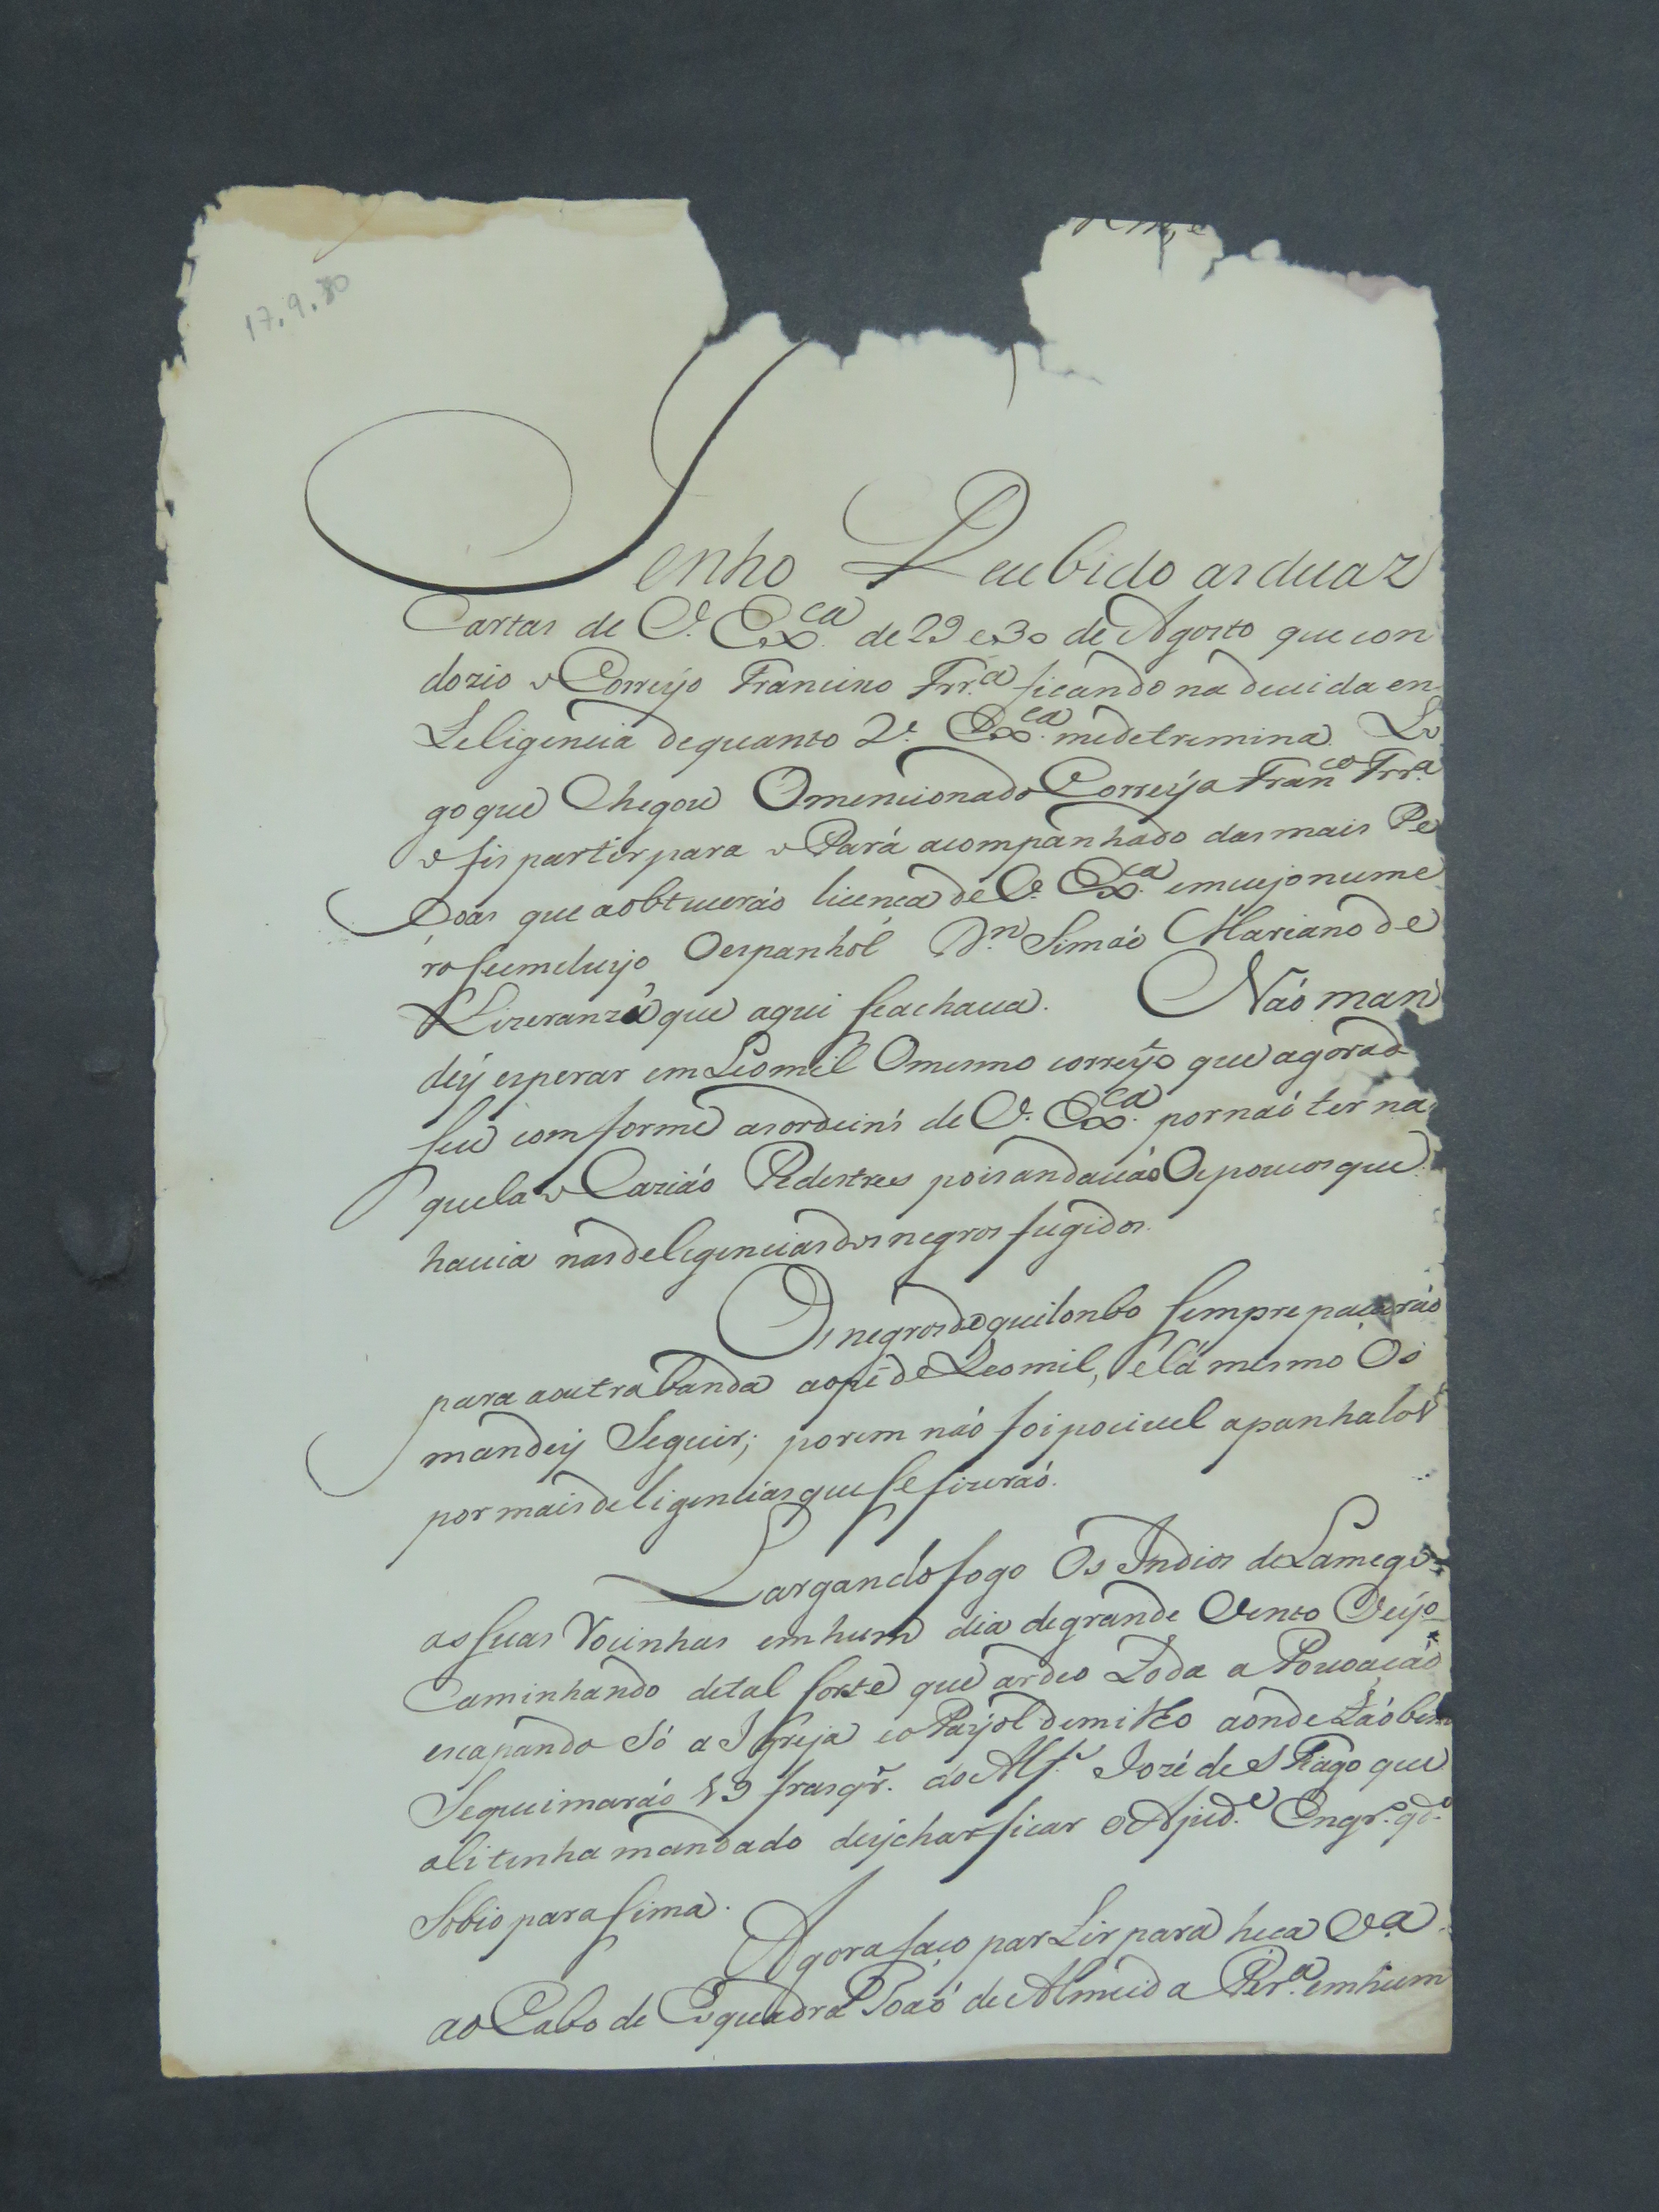 17.9.80
Tenho Recebido as duaz
Cartas de V. Exca. de 29 e 30 de Agosto que con
dozio o Correyo Francisco Frr.a ficando na devida en
teligencia de quanto V. Exca. me detremina. Lo
go que Chegou O mencionado Correyo Franco Frr.a
o fis partir para o Pará acompanhado das mais Pe
Soas que a obtuverão licença de V. Exca. em cujo nume
ro se incluiyo O espanhol Dn. Simaó Mariano de
que aqui se achava. Não man
dey esperar em Leomil O mesmo correyo que agora
seu comforme as ordeins de V. Exca. por naó ter na
quela Pedestres pois andavão Os poucos que
havia nas deligencias dos negros fugidos.
Os negros do quilonbo sempre paçarão
para a outra banda ao pé de Leomil, e lá mesmo Os
mandey Seguir; porem não foi pocivel apanhalos
por mais deligencias que se fizeraó.
Largando fogo Os Indios de Lamego
as suas Rocinhas em hum dia de grande Vento Veyo
Caminhando de tal sorte que ardeo toda a Povoação
escapando Só a Igreja e o Payol de milho aonde taó bem
Se queimaráo 19 frasqr. do Alf.e Jozé de S Tiago que
ali tinha mandado deychar ficar o Ajud.e Engr. qd.o
Sobio para sima.
Agora faço partir para heca V.a
ao Cabo de Esquadra Joaó de Almeida Per.a em hum